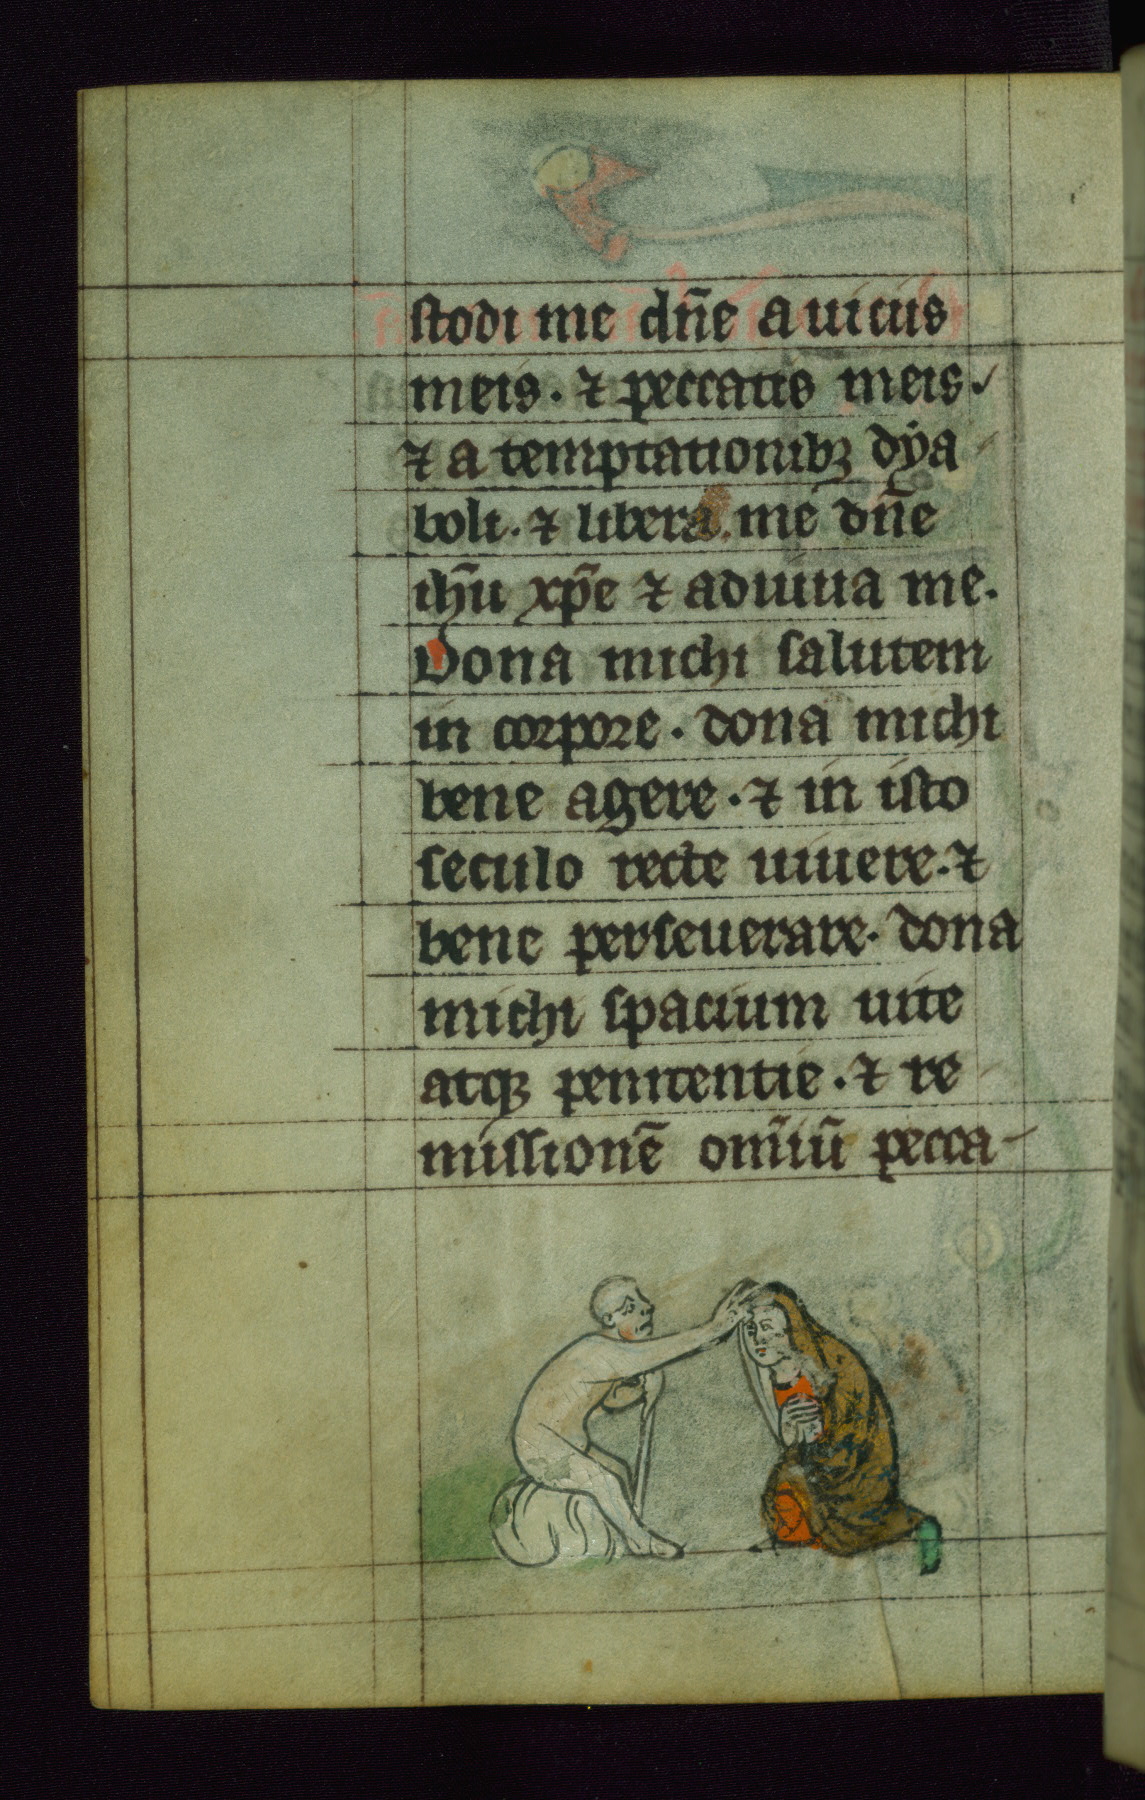 stodi me dn̄e a uiciis
meis. ⁊ peccatis meis.
⁊ a temptationibꝫ dẏa
boli. ⁊ libera. me dn̄e
ih̄u xp̄e ⁊ adiuua me.
Dona michi salutem
in corpore. dona michi
bene agere. ⁊ in isto
seculo recte uiuere. ⁊
bene perseuerare. dona
michi spacium uite
atqꝫ penitentie. ⁊ re
missionē om̄iū pecca-